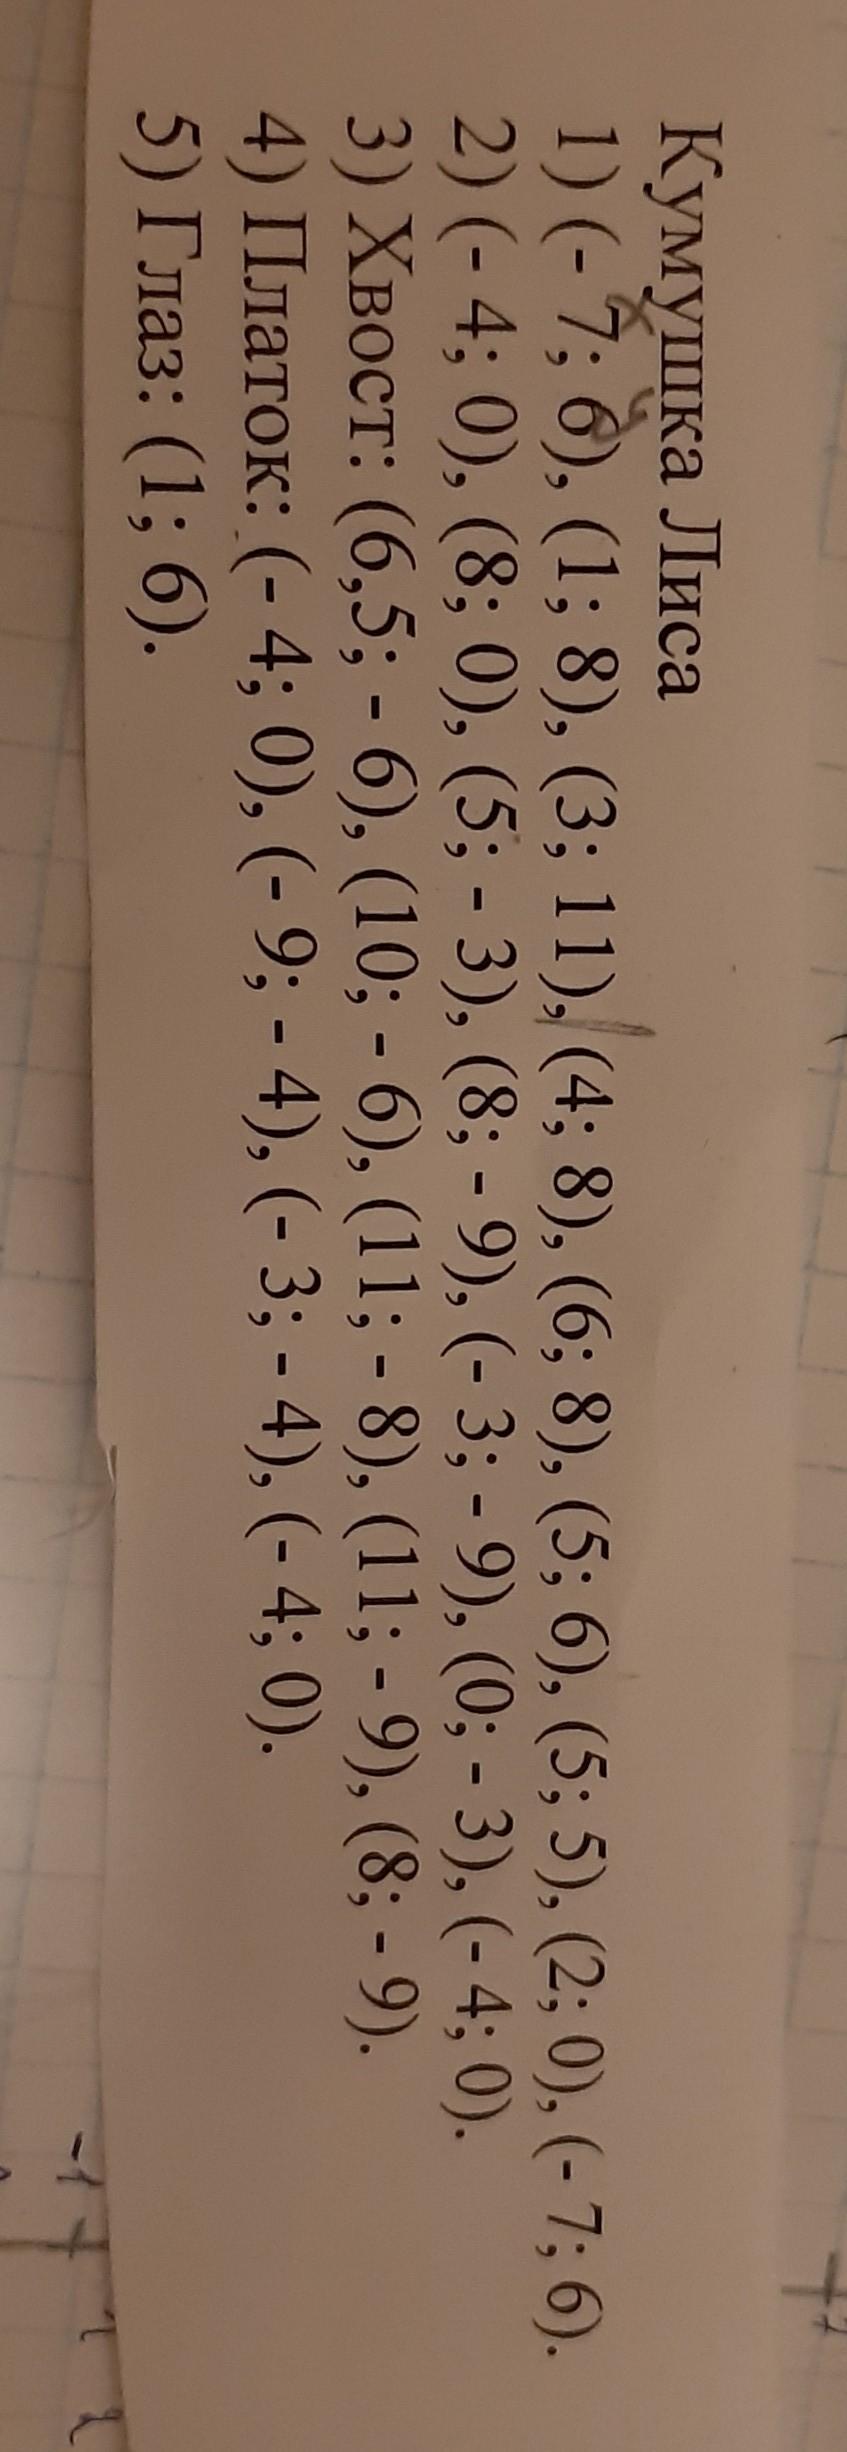 Кумушка Лиса
1) (- 7; 6), (1; 8), (3; 11), (4; 8), (6; 8), (5; 6), (5; 5), (2; 0), (- 7; 6).
x y
2) (- 4; 0), (8; 0), (5; - 3), (8; - 9), (- 3; - 9), (0; - 3), (- 4; 0).
3) Хвост: (6,5; - 6), (10; - 6), (11; - 8), (11; - 9), (8; - 9).
4) Платок: (- 4; 0), (- 9; - 4), (- 3; - 4), (- 4; 0).
5) Глаз: (1; 6).
-1